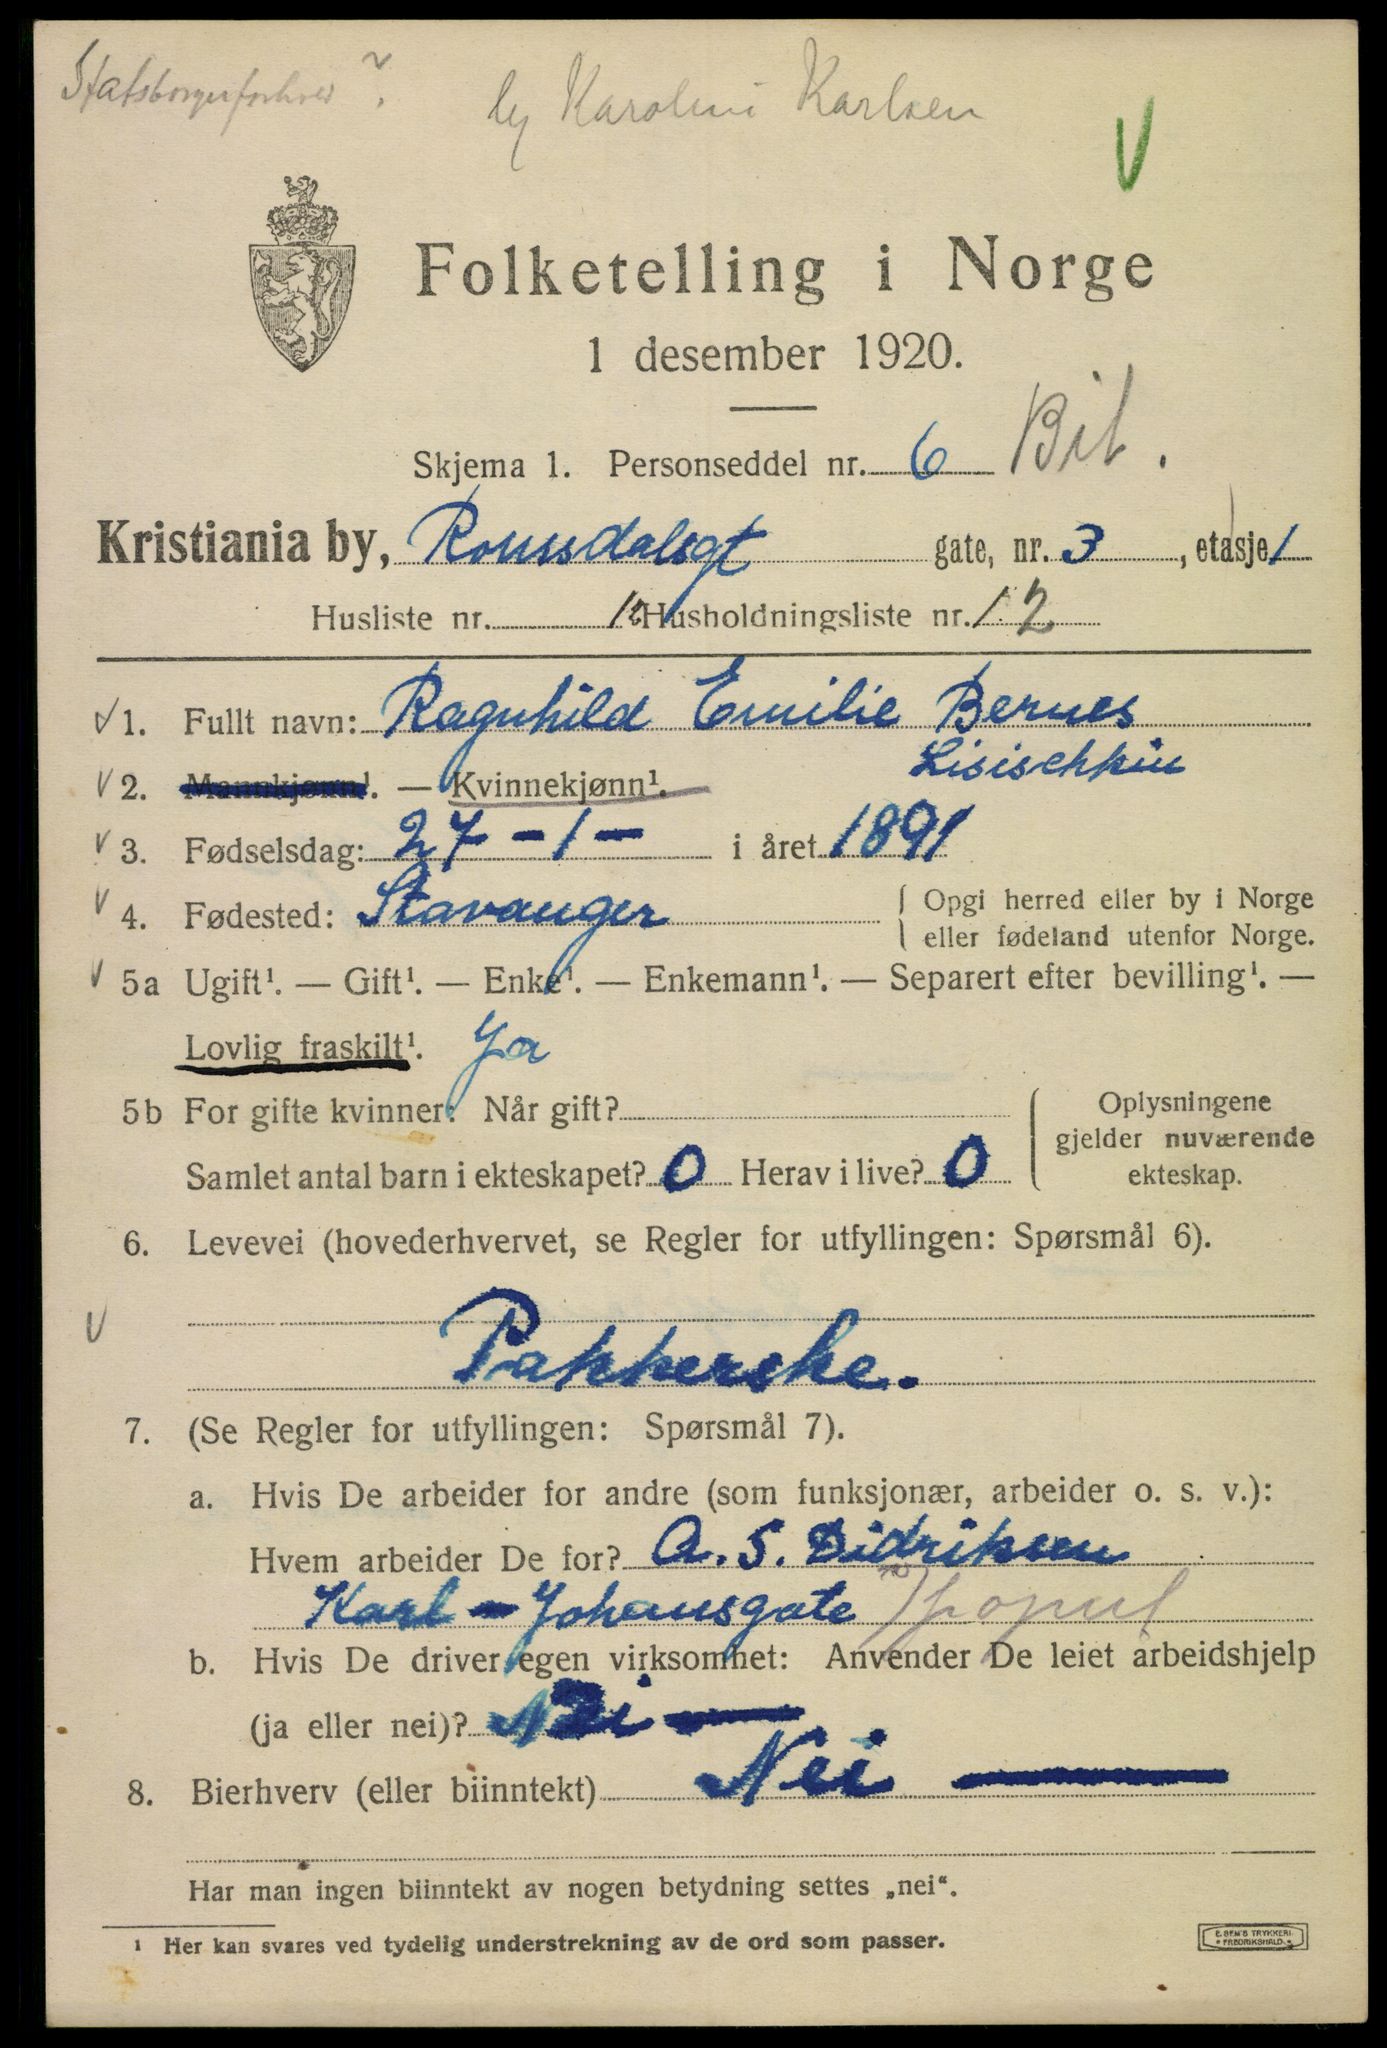 Statsborgerforhold?
hj Karoline Karlsen
V
Folketelling i Norge
1 desember 1920.
Skjema 1. Personseddel nr. 6 Bib.
Kristiania by, Romsdalsgt gate, nr. 3, etasje 1
Husliste nr. 12 Husholdningsliste nr. 12
1. Fullt navn: Ragnhild Emilie Bernes
Lisischkin
2. Mannkjønn¹. — Kvinnekjønn¹.
3. Fødselsdag: 27 - 1 - i året 1891
4. Fødested: Stavanger
{ Opgi herred eller by i Norge
eller fødeland utenfor Norge.
5a Ugift¹. — Gift¹. — Enke¹. — Enkemann¹. — Separert efter bevilling¹. —
Lovlig fraskilt¹. Ja
5b For gifte kvinner: Når gift?
Samlet antal barn i ekteskapet? 0 Herav i live? 0
{ Oplysningene
gjelder nuværende
ekteskap.
6. Levevei (hovederhvervet, se Regler for utfyllingen: Spørsmål 6).
Pakkerske.
7. (Se Regler for utfyllingen: Spørsmål 7).
a. Hvis De arbeider for andre (som funksjonær, arbeider o. s. v.):
Hvem arbeider De for? A. S. Didriksen
Karl - Johansgate
b. Hvis De driver egen virksomhet: Anvender De leiet arbeidshjelp
(ja eller nei)? Nei —
8. Bierhverv (eller biinntekt) Nei —
Har man ingen biinntekt av nogen betydning settes „nei“.
¹ Her kan svares ved tydelig understrekning av de ord som passer.
E. SEM'S TRYKKERI
FREDRIKSHALD